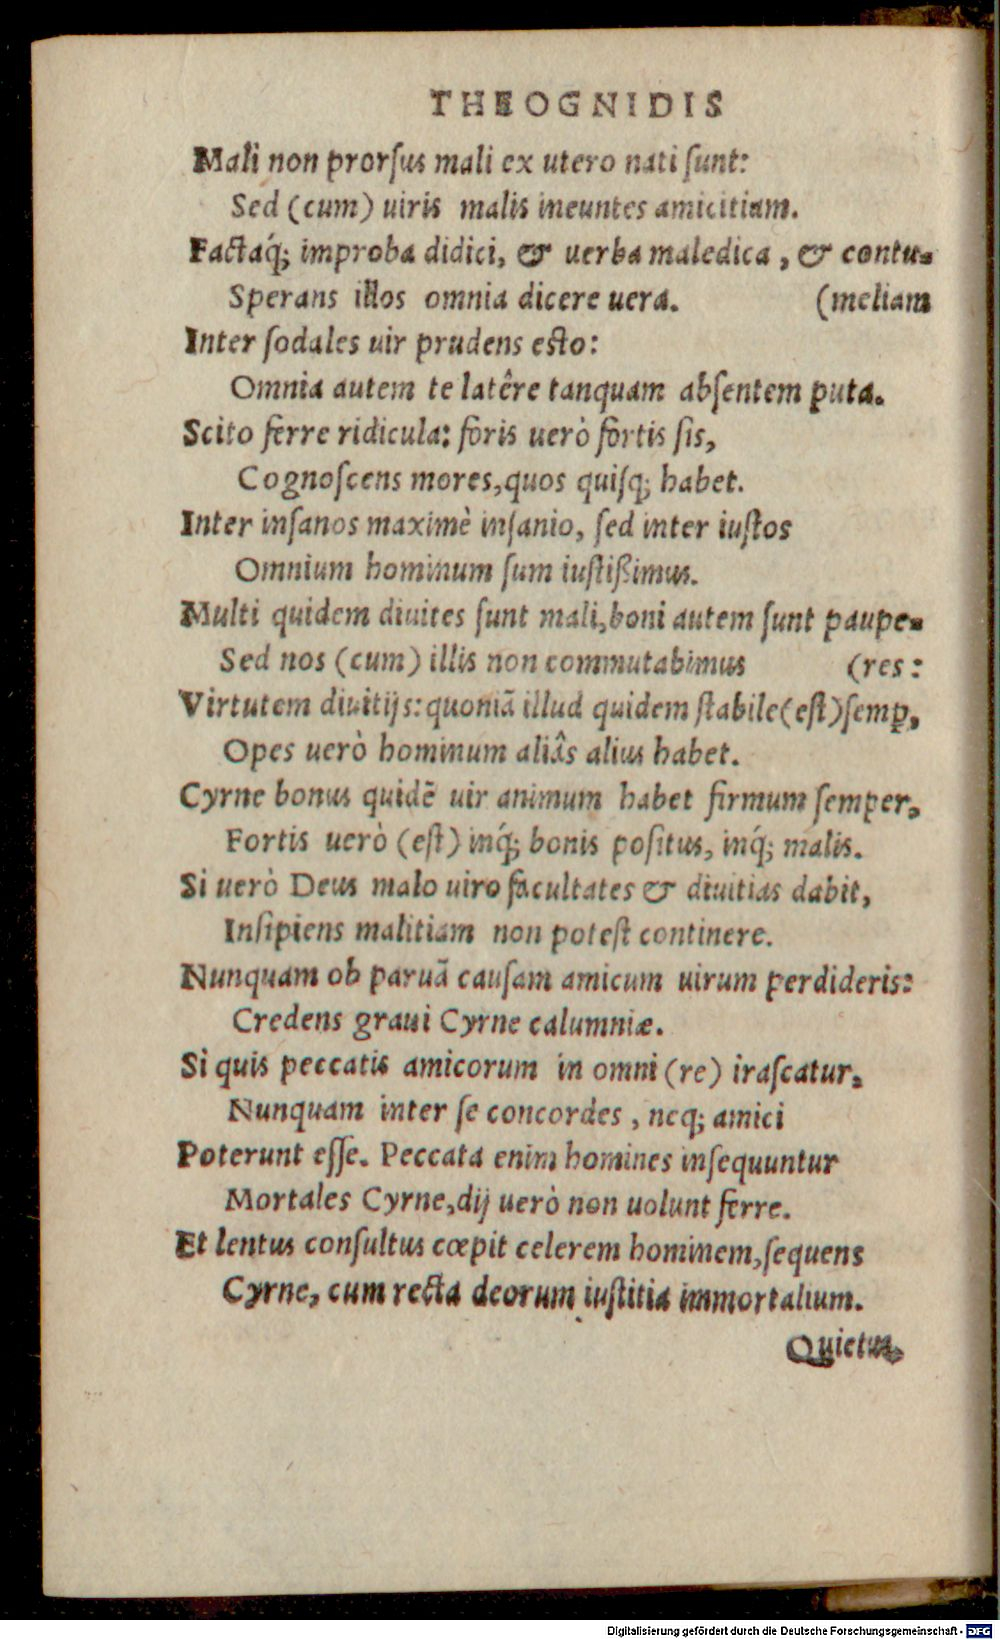 THEOGNIDIS
Mali non prorſus mali ex utero nati ſunt:
Sed (cum) uiris malis ineuntes amicitiam.
Factaq́; improba didici, & uerba maledica, & contu-
Sperans illos omnia dicere uera. (meliam
Inter ſodales uir prudens eſto:
Omnia autem te latêre tanquam abſentem puta.
Scito ferre ridicula: foris uerò fortis ſis,
Cognoſcens mores, quos quiſq; habet.
Inter inſanos maximè inſanio, ſed inter iuſtos
Omnium hominum ſum iuſtißimus.
Multi quidem diuites ſunt mali, boni autem ſunt paupe-
Sed nos (cum) illis non commutabimus (res:
Virtutem diuitijs: quoniã illud quidem ſtabile (eſt) ſemꝑ,
Opes uerò hominum aliâs alius habet.
Cyrne bonus quidẽ uir animum habet firmum ſemper,
Fortis uerò (eſt) inq́; bonis poſitus, inq́; malis.
Si uerò Deus malo uiro facultates & diuitias dabit,
Inſipiens malitiam non poteſt continere.
Nunquam ob paruã cauſam amicum uirum perdideris:
Credens graui Cyrne calumniæ.
Si quis peccatis amicorum in omni (re) iraſcatur,
Nunquam inter ſe concordes, neq; amici
Poterunt eſſe. Peccata enim homines inſequuntur
Mortales Cyrne, dij uerò non uolunt ferre.
Et lentus conſultus cœpit celerem hominem, ſequens
Cyrne, cum recta deorum iuſtitia immortalium.
Quietus,
Digitalisierung gefördert durch die Deutsche Forschungsgemeinschaft - DFG